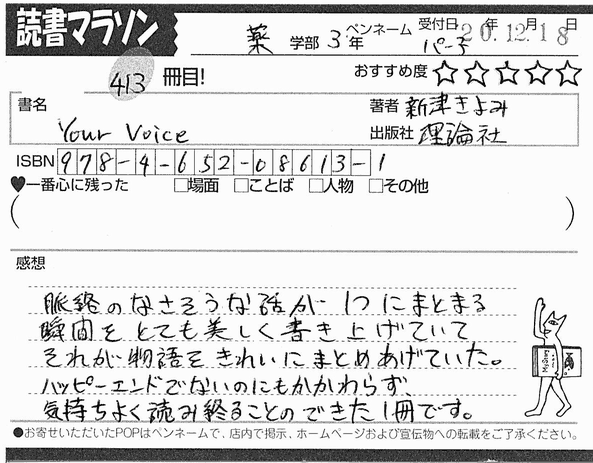 読書マラソン
薬 学部 3年 ペンネーム パー子 受付日 20年12月18日
413 冊目!
おすすめ度 ☆☆☆☆☆
書名
Your Voice
著者 新津きよみ
出版社 理論社
ISBN 978-4-652-08613-1
♥一番心に残った □場面 □ことば □人物 □その他
( )
感想
脈絡のなさそうな話が1つにまとまる
瞬間をとても美しく書き上げていて
それが物語をきれいにまとめあげていた。
ハッピーエンドでないのにもかかわらず、
気持ちよく読み終ることのできた1冊です。
●お寄せいただいたPOPはペンネームで、店内で掲示、ホームページおよび宣伝物への転載をご了承ください。